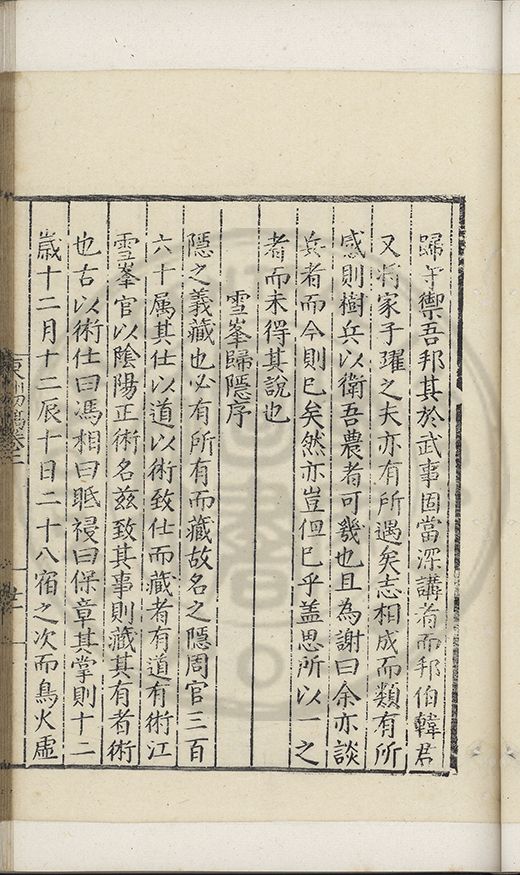 歸于禦吾邦其於武事固當深講者而邦伯韓君
又將家子躍之夫亦有所遇矣志相成而類有所
感則樹兵以衛吾農者可幾也且為謝曰余亦談
兵者而今則已矣然亦豈但已乎盖思所以一之
者而未得其說也
雪峯歸隱序
隱之義藏也必有所有而藏故名之隱周官三百
六十属其仕以道以術致仕而藏者有道有術江
雪峯官以陰陽正術名兹致其事則藏其有者術
也古以術仕曰馮相曰眂祲曰保章其掌則十二
歲十二月十二辰十日二十八宿之次而鳥火虛